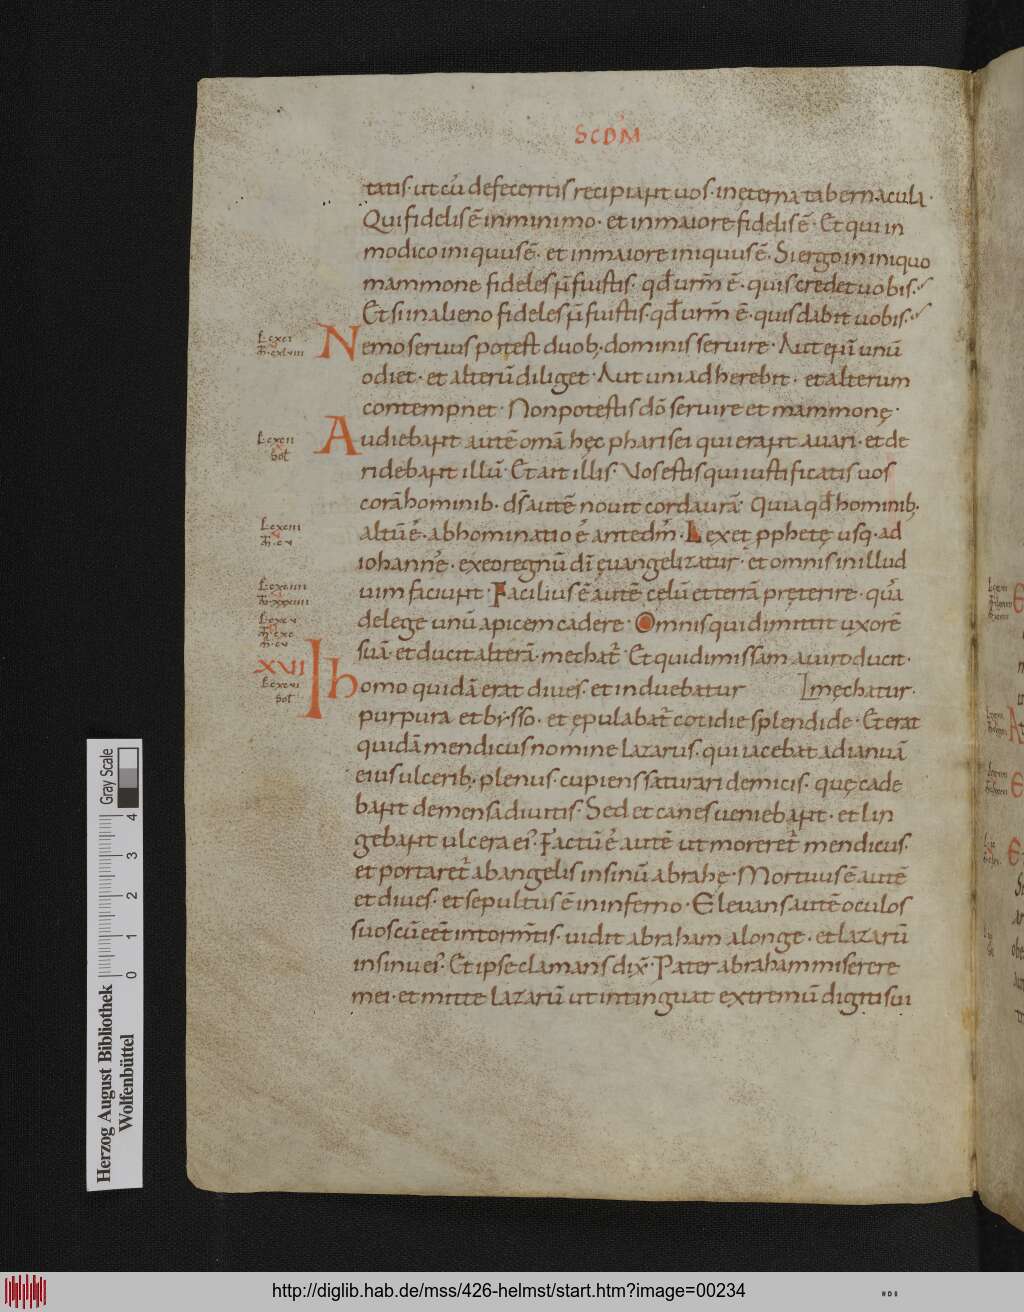 SCDM
tatis· ut cū defeceritis recipiant uos· in ęterna tabernacula·
Qui fidelis ē in minimo· et in maiore fidelis ē· Et qui in
modico iniquus ē· et in maiore iniquus ē· Si ergo in iniquo
mammone fideles ñ fuistis· qđ urm̄ ē· quis credet uobis·
Et si in alieno fideles ñ fuistis· qđ urm̄ ē· quis dabit uobis·
Nemo seruus potest duob; dominis seruire· Aut eni unū
odiet· et alterū diliget· Aut uni adherebit· et alterum
contempnet· Non potestis dō seruire et mammonę·
Audiebant autē omā hęc pharisei qui erant auari· et de
ridebant illū· Et ait illis· Vos estis qui iustificatis uos
corā hominib· ds̄ autē nouit corda urā· Quia qđ hominib;
altū ē· abhominatio ē ante dm̄· Lex et pphetę usq· ad
iohannē· ex eo regnū dī ęuangelizatur· et omnis in illud
uim faciunt· Facilius ē autē cęlū et terrā pręterire· quā
de lege unū apicem cadere· Omnis qui dimittit uxorē
suā· et ducit alterā· mechat· Et qui dimissam a uiro ducit·
XVI
Homo quidā erat diues· et induebatur męchatur·
purpura et bysso· et ępulabat cotidie splendide· Et erat
quidā mendicus nomine lazarus· qui iacebat ad ianuā
eius ulcerib; plenus· cupiens saturari de micis· quę cade
bant de mensa diuitis· Sed et canes ueniebant· et lin
gebant ulcera ei· Factū ē autē ut moreret mendicus·
et portaret ab angelis in sinū abrahę· Mortuus ē autē
et diues· et sepultus ē in inferno· Eleuans autē oculos
suos cū eēt in tormtis· uidit abraham a longe· et lazarū
in sinu ei· Et ipse clamans dix· Pater abraham miserere
mei· et mitte lazarū ut intinguat extremū digiti sui
Gray Scale
4 3 2 1 0
Herzog August Bibliothek
Wolfenbüttel
http://diglib.hab.de/mss/426-helmst/start.htm?image=00234